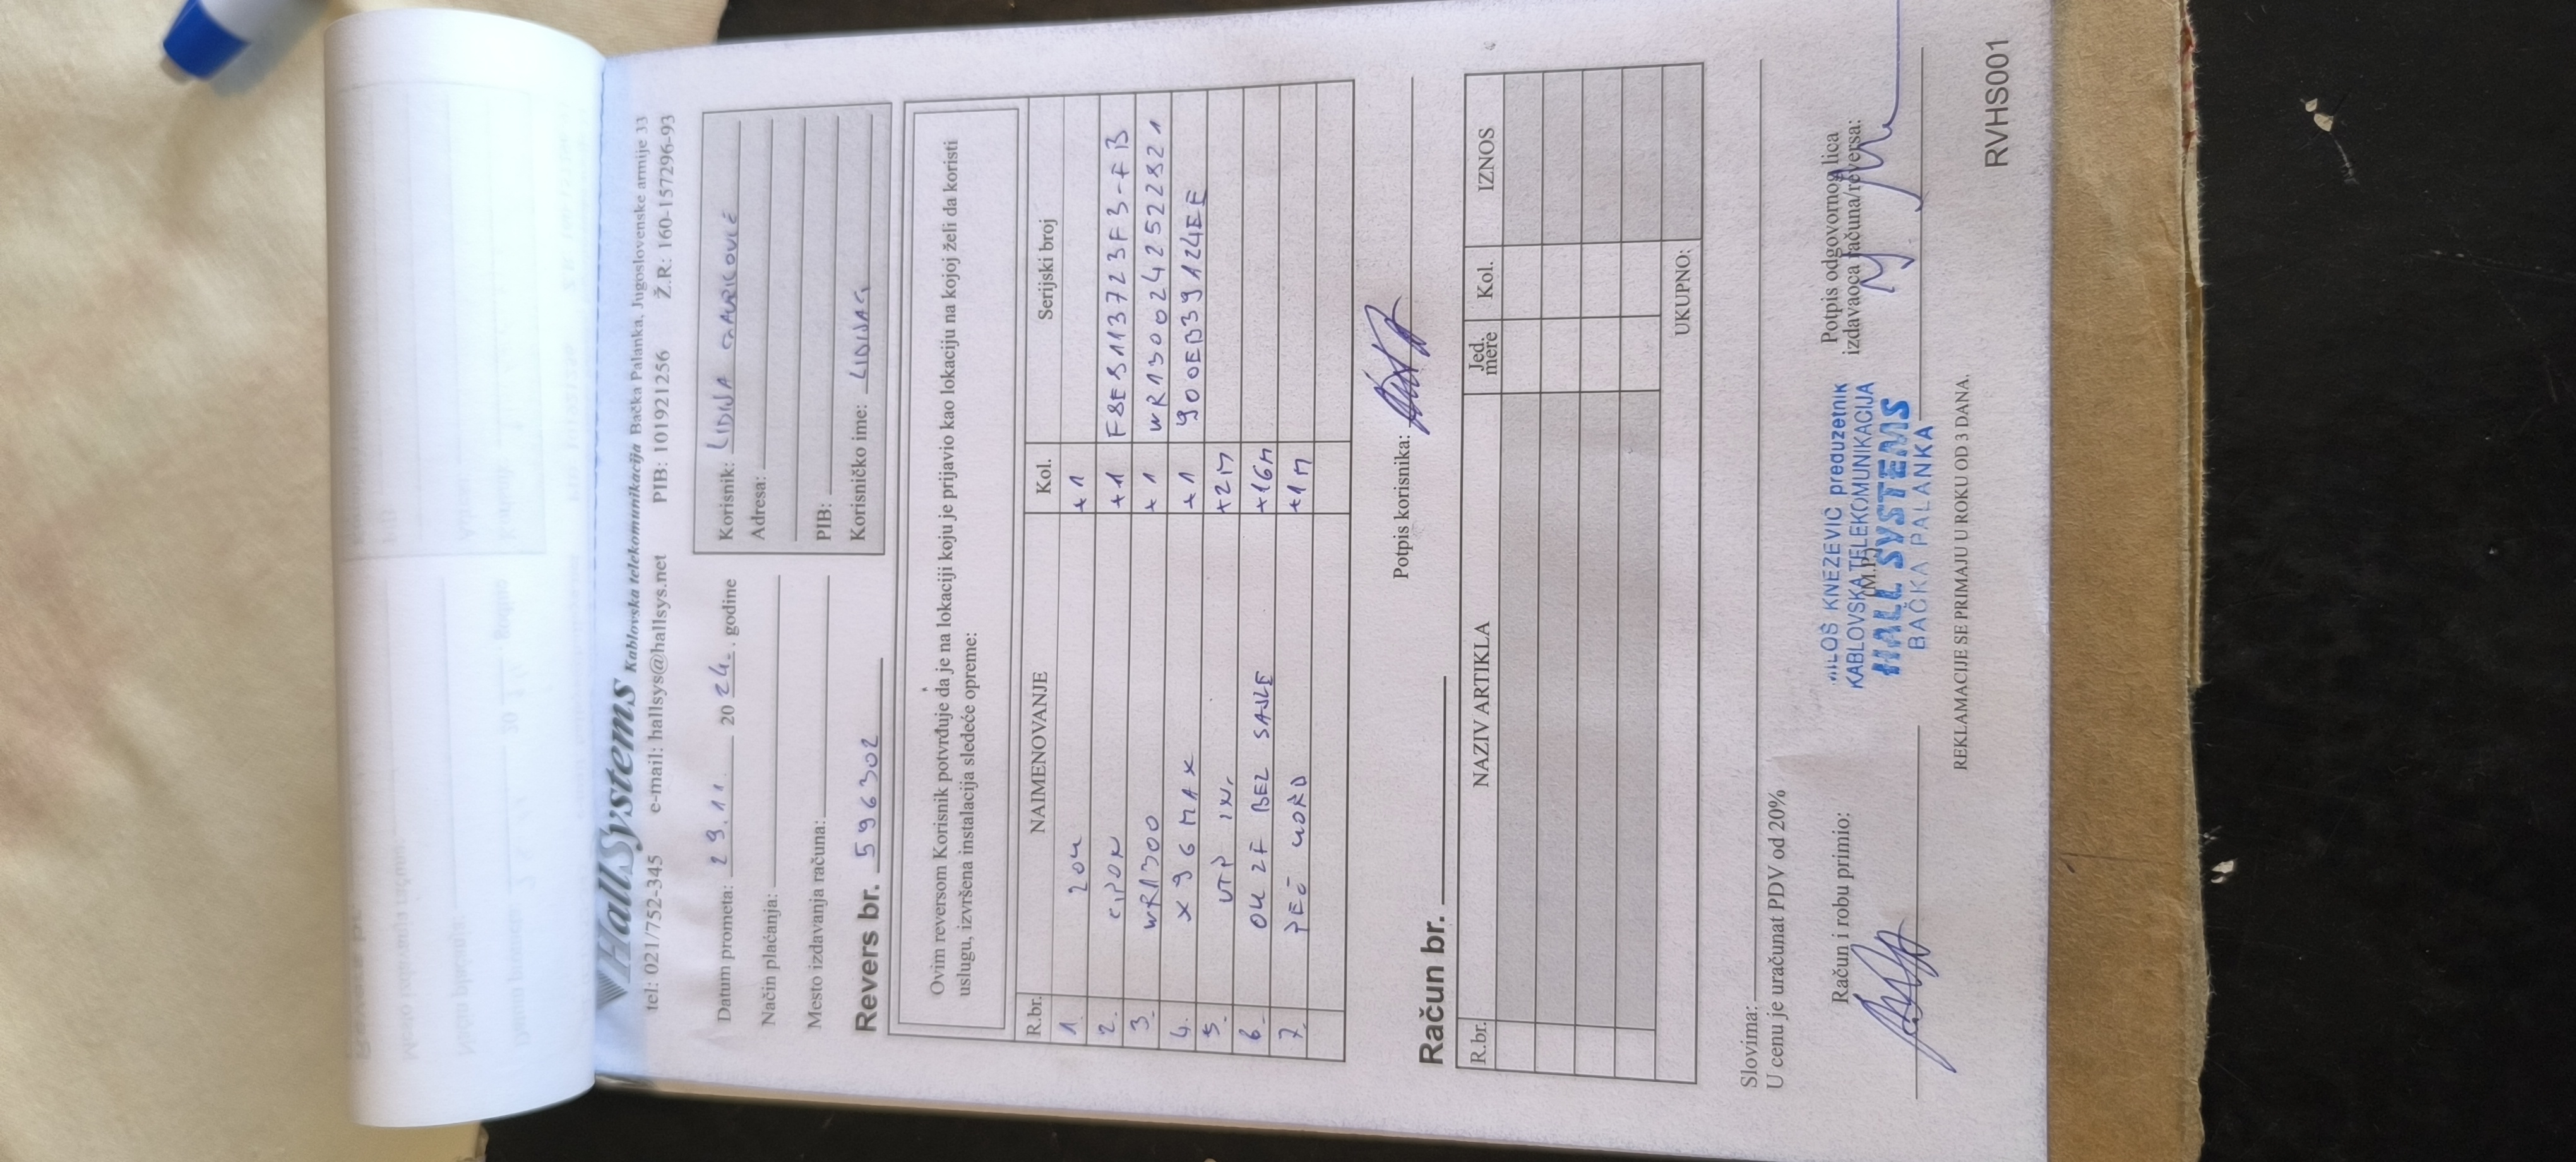 HallSystems Kablovska telekomunikacija Bačka Palanka, Jugoslovenske armije 33
tel: 021/752-345 e-mail: hallsys@hallsys.net PIB: 101921256 Ž.R: 160-157296-93
Datum prometa: 29.11. 2024. godine
Način plaćanja:
Mesto izdavanja računa:
Revers br. 596302
Korisnik: LIDIJA
Adresa:
PIB:
Korisničko ime: LIDIJAG
Ovim reversom Korisnik potvrđuje da je na lokaciji koju je prijavio kao lokaciju na kojoj želi da koristi
uslugu, izvršena instalacija sledeće opreme:
R.br. NAIMENOVANJE Kol. Serijski broj
1. ZOK *1
2. *1 F8E5113723F3-FB
3. WR1300 *1 WR13002425522821
4. X96 MAX *1 900EB39124EE
5. UTP *2M
6. OK 2F BEZ SAJLE *16M
7. *1M
Potpis korisnika:
Račun br.
R.br. NAZIV ARTIKLA Jed. mere Kol. IZNOS
UKUPNO:
Slovima:
U cenu je uračunat PDV od 20%
Račun i robu primio:
(M.P.)
MILOŠ KNEZEVIC preduzetnik
KABLOVSKA TELEKOMUNIKACIJA
HALL SYSTEMS
BAČKA PALANKA
Potpis odgovornog lica
izdavaoca računa/reversa:
REKLAMACIJE SE PRIMAJU U ROKU OD 3 DANA.
RVHS001